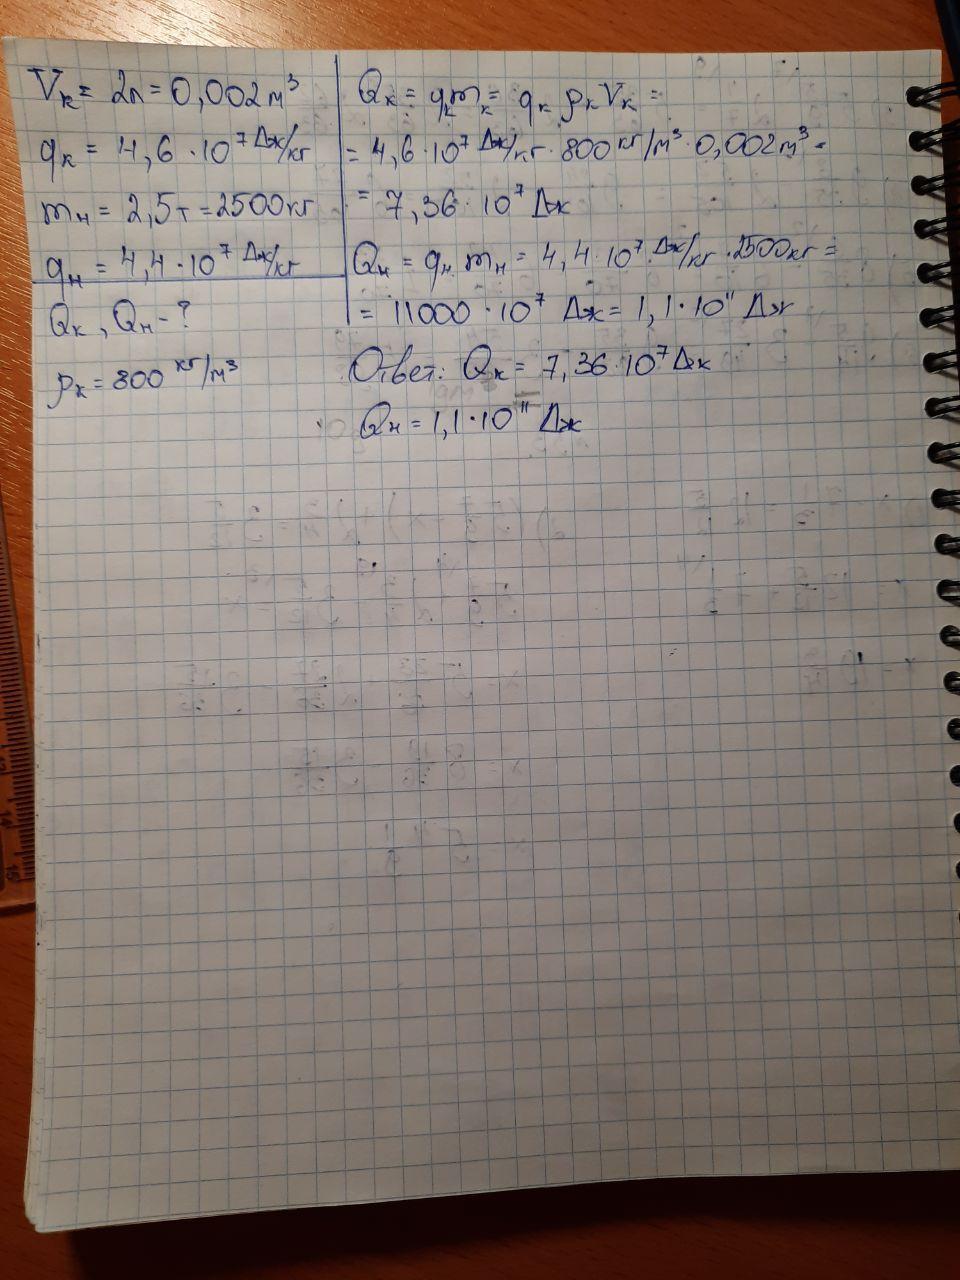 Vк = 2л = 0,002 м³
qк = 4,6 · 10⁷ Дж/кг
mн = 2,5т = 2500кг
qн = 4,4 · 10⁷ Дж/кг
Qк, Qн - ?
ρк = 800 кг/м³
Qк = qкmк = qк ρк Vк =
= 4,6 · 10⁷ Дж/кг · 800 кг/м³ · 0,002 м³ =
= 7,36 · 10⁷ Дж
Qн = qн mн = 4,4 · 10⁷ Дж/кг · 2500кг =
= 11000 · 10⁷ Дж = 1,1 · 10¹¹ Дж
Ответ: Qк = 7,36 · 10⁷ Дж
Qн = 1,1 · 10¹¹ Дж